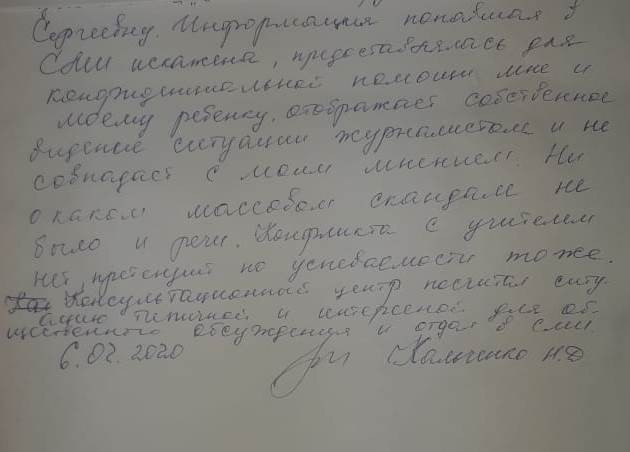 Сергеевну. Информация попавшая в
СМИ искажена, предоставлялась для
конфиденциальной помощи мне и
моему ребенку. отображает собственное
видение ситуации журналистом и не
совпадает с моим мнением. Ни
о каком массовом скандале не
было и речи. Конфликта с учителем
нет, претензий по успеваемости тоже.
Консультационный центр посчитал ситу
ацию типичной и интересной для об-
щественного обсуждения и отдал в СМИ.
6.02.2020 Кальченко Н.Д